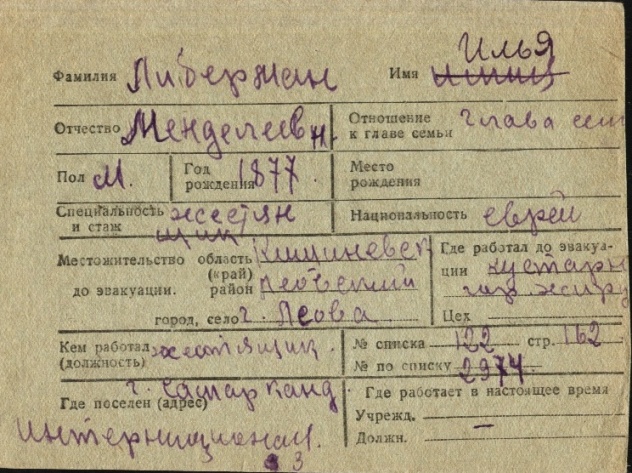 Илья
Фамилия Либерман Имя
Отчество Менделеевич Отношение к главе семьи глава сем
Пол М. Год рождения 1877. Место рождения
Специальность и стаж жестян Национальность еврей
щик
Местожительство область (край) Кишиневск Где работал до эвакуа-
ции кустарн
до эвакуации. район Леовский
город, село г. Леова Цех
Кем работал (должность) жестящик. № списка 122 стр. 162
№ по списку 2974
Где поселен (адрес) г. Самарканд Где работает в настоящее время
Учрежд.
Интернационал. Должн. —
3